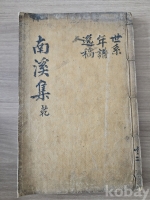 世系
年譜
選稿
南溪集 乾
kobay